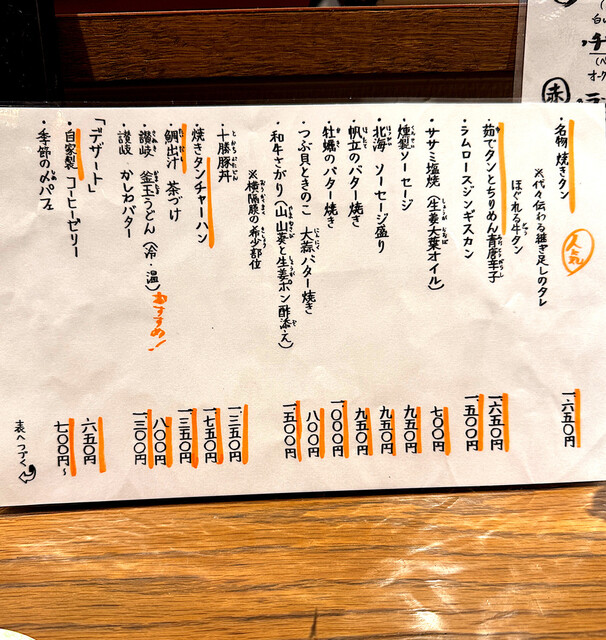 名物 焼きタン 人気 一、六五〇円
※代々伝わる継ぎ足しのタレ
ほぐれる牛タン
・茹でタンとちりめん青唐辛子 一、六五〇円
・ラムロースジンギスカン 一、五〇〇円
・ササミ塩焼(生姜大葉オイル) 七〇〇円
・燻製ソーセージ 九五〇円
・北海 ソーセージ盛り 九五〇円
・帆立のバター焼き 九五〇円
・牡蠣のバター焼き 一、〇〇〇円
・つぶ貝ときのこ 大蒜バター焼き 八〇〇円
・和牛さがり(山山葵と生姜ポン酢添え) 一、五〇〇円
※横隔膜の希少部位
・十勝豚丼 一、三五〇円
・焼きタンチャーハン 一、七五〇円
・鯛出汁 茶づけ 一、三五〇円
・讃岐 釜玉うどん(冷・温) おすすめ! 八〇〇円
・讃岐 かしわバター 一、三〇〇円
「デザート」
・自家製コーヒーゼリー 六五〇円
・季節の〆パフェ 七〇〇円~
表へつづく
白い
オーク
赤